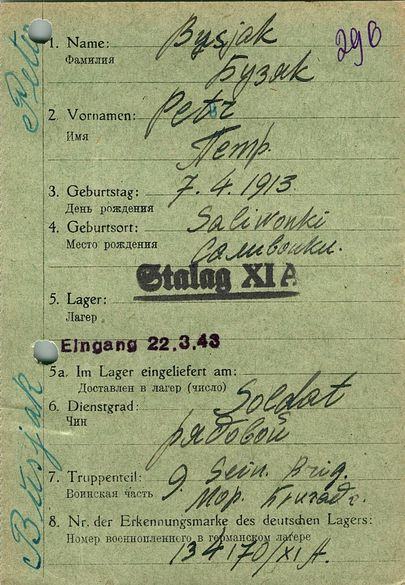 Petr
290
1. Name: Bysjak
Фамилия
Бузяк
2. Vornamen: Petr
Имя
Петр.
3. Geburtstag: 7.4.1913.
День рождения
4. Geburtsort: Saliwonki
Место рождения Саливонки.
Stalag XI A
5. Lager:
Лагерь
Eingang 22.3.43
5a. Im Lager eingeliefert am:
Доставлен в лагерь (число)
6. Dienstgrad: Soldat
Чин
рядовой
7. Truppenteil: 9. Brig.
Воинская часть Мор. Бригад
8. Nr. der Erkennungsmarke des deutschen Lagers:
Номер военнопленного в германском лагере
134170/XI A.
Busjak